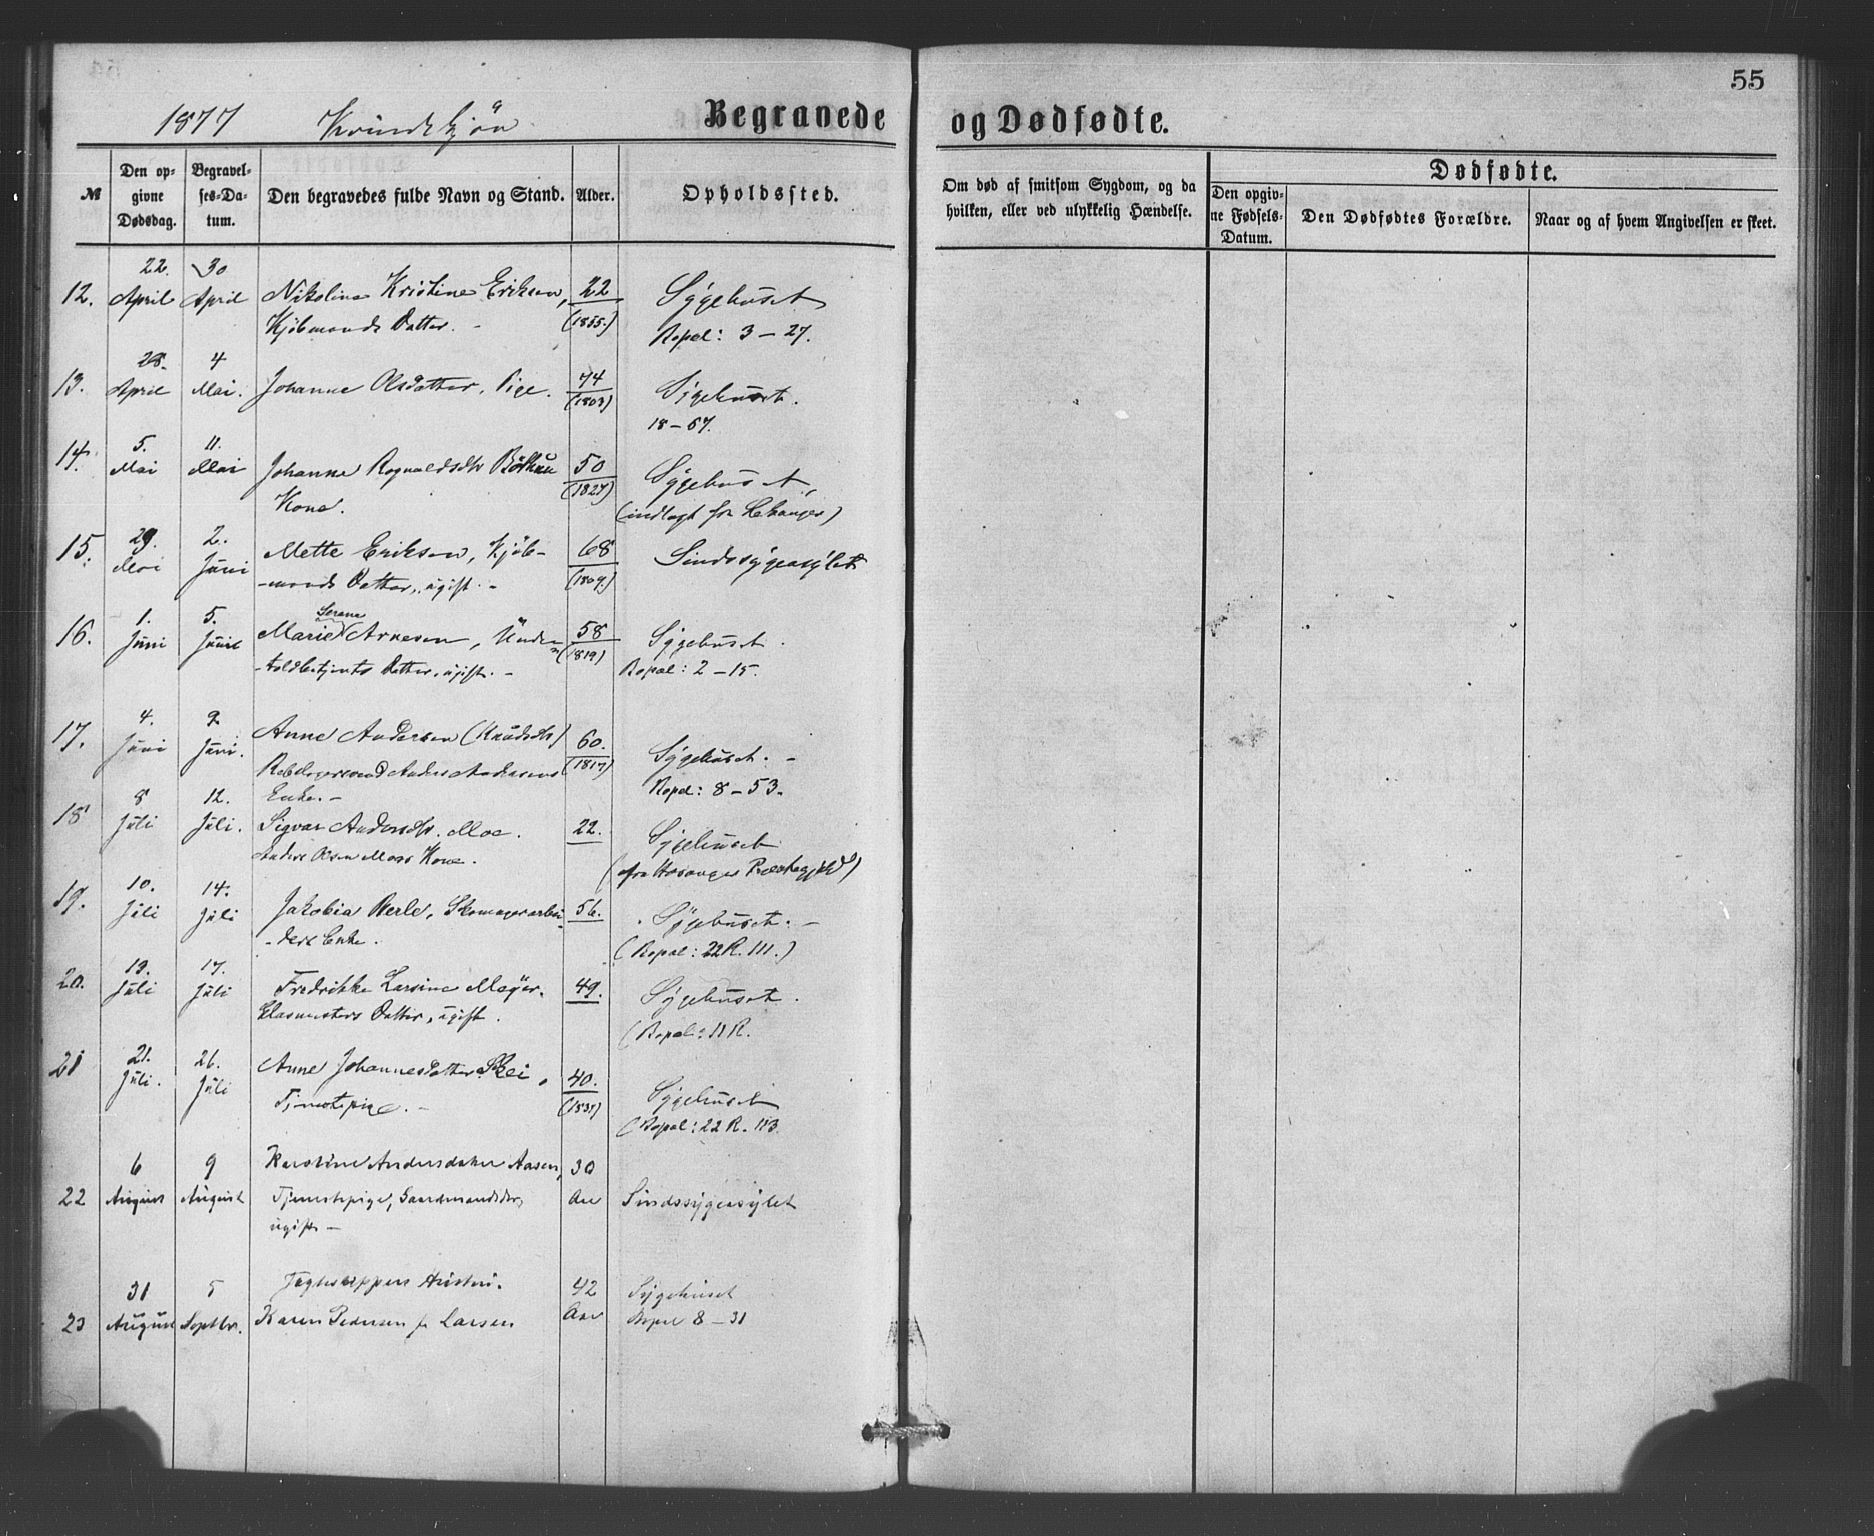 55
1877 Kvindekjön Begravede og Dødfødte.
№ Den opgivne Dødsdag. Begravelses-Datum. Den begravedes fulde Navn og Stand. Alder. Opholdssted. Om død af smitsom Sygdom, og da hvilken, eller ved ulykkelig Hændelse. Dødfødte. Den opgivne Fødsels-Datum. Den Dødfødtes Forældre. Naar og af hvem Angivelsen er skeet.
22. 30
12. April April Nikoline Kristine Eriksen, 22 Sygehuset
Kjöbmands Datter. - (1855.) Bopel: 3 - 27.
28. 4
13. April Mai. Johanne Olsdatter, Pige. 74 Sygehuset.
(1803) 18 - 57.
5. 11.
14. Mai Mai Johanne Rognaldsdtr 50 Sygehuset,
Kone. (1827) (indlagt fr
29. 2.
15. Mai Juni Mette Eriksen, Kjöb- 68 Sindssygeasylet
-mands Datter, ugift. - (1809.)
1. 5. Serene
16. Juni Juni Marie Arnesen, Under- 58 Sygehuset.
-toldbetjents Datter, ugift. - (1819) Bopæl: 2 - 15.
4. 9.
17. Juni Juni. Anne Andersen (Knudsdtr) 60. Sygehuset. -
Anders Andersens (1817) Bopel: 8 - 53.
8 12. Enke. -
18 Juli Juli. Sigvar Andersdtr. Moe. 22. Sygehuset
Anders Olsen Moes Kone. (fra Hosanger Præstegjeld)
10. 14.
19. Juli Juli Jakobia Berle, Skomagerarbei- 56. Sygehuset. -
-ders Enke. (Bopal: 22 R. 111.)
13. 17.
20. Juli Juli Fredrikke Larsine Meyer. 49. Sygehuset.
Glasmesters Datter, ugift. (Bopal: 11 R.
21. 26.
21 Juli. Juli Anne Johannesdatter Skei, 40. Sygehuset
Tjenestepige. - (1837) (Bopal: 22 R. 113.
6 9 Karoline Andersdatter Aasen, 30
22 August August Tjenestepige, Gaardmandsdtr, Aar Sindssygeasylet
ugift -
31 5 42 Sygehuset
23 August Septbr. Karen Pedersen f. Larsen Aar Bopel 8 - 31